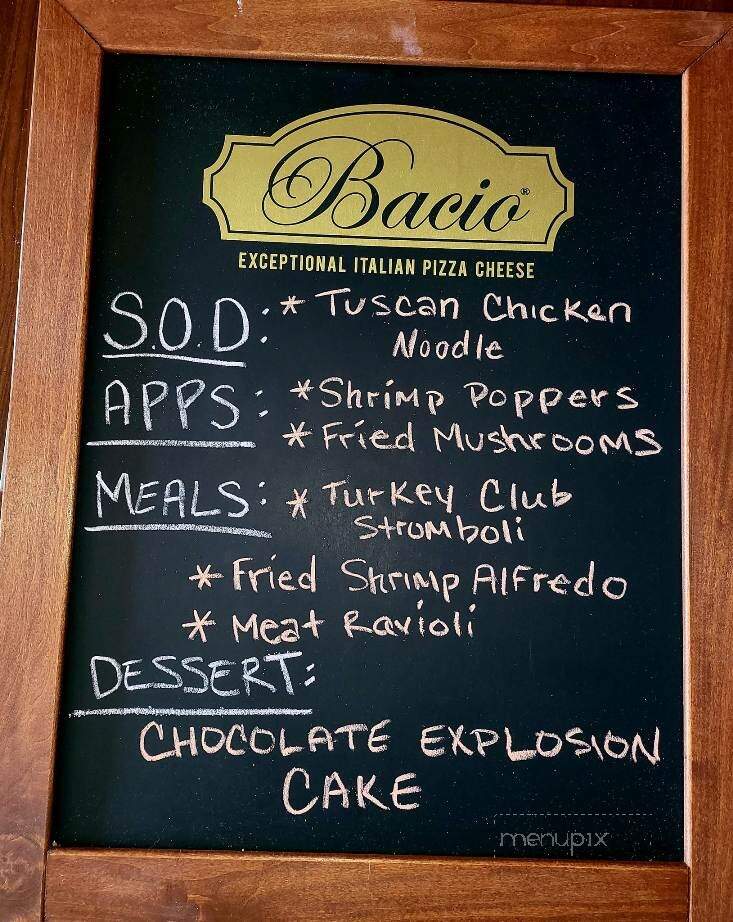 Bacio®
EXCEPTIONAL ITALIAN PIZZA CHEESE
S.O.D: * Tuscan Chicken
Noodle
APPS: * Shrimp Poppers
* Fried Mushrooms
MEALS: * Turkey Club
Stromboli
* Fried Shrimp Alfredo
* Meat Ravioli
DESSERT:
CHOCOLATE EXPLOSION
CAKE
menupix